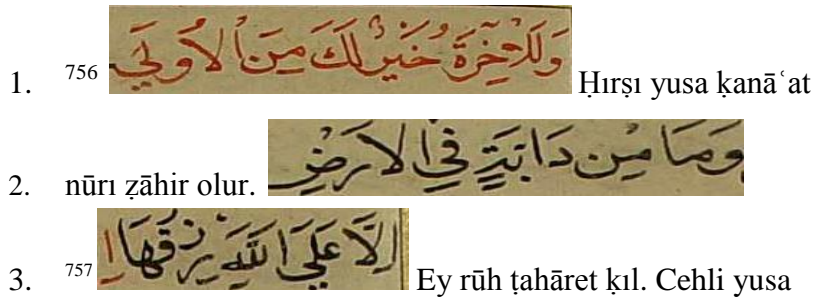 1. 756 وَلَلْاٰخِرَةُ خَيْرٌ لَكَ مِنَ الْاُولَي Ḥırṣı yusa ḳanāʿat
2. nūrı ẓāhir olur. وَمَا مِنْ دَابَّةٍ فِي الْاَرْضِ
3. 757 اِلَّا عَلَي اللّٰهِ رِزْقُهَا Ey rūḥ ṭahāret ḳıl. Cehli yusa